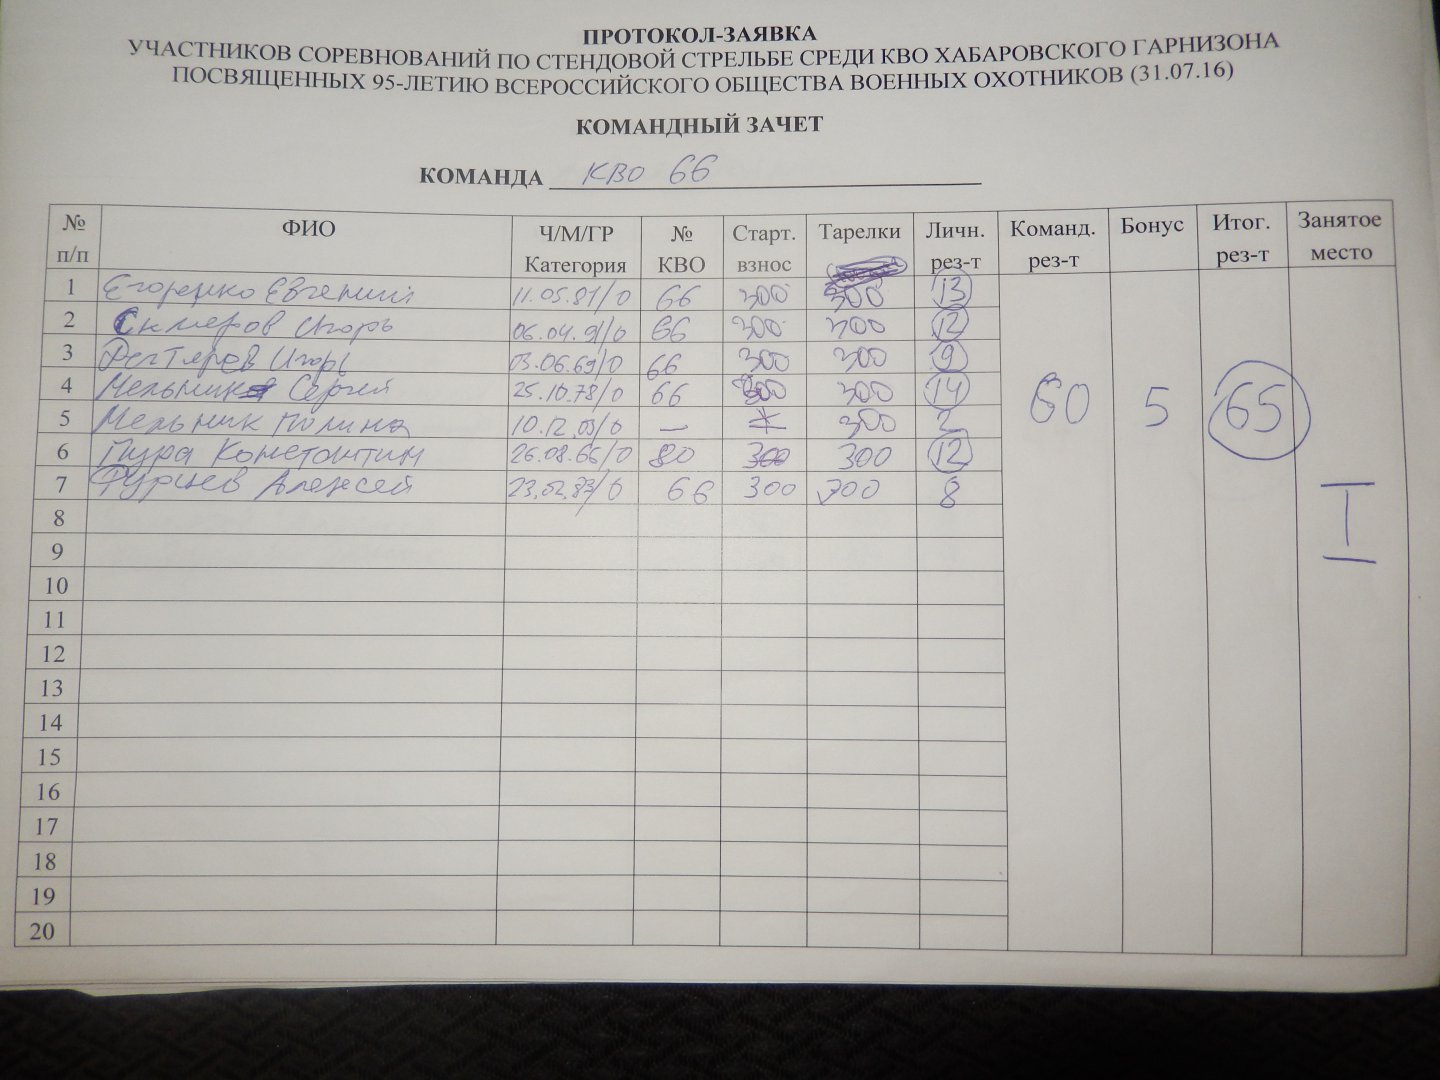 ПРОТОКОЛ-ЗАЯВКА
УЧАСТНИКОВ СОРЕВНОВАНИЙ ПО СТЕНДОВОЙ СТРЕЛЬБЕ СРЕДИ КВО ХАБАРОВСКОГО ГАРНИЗОНА
ПОСВЯЩЕННЫХ 95-ЛЕТИЮ ВСЕРОССИЙСКОГО ОБЩЕСТВА ВОЕННЫХ ОХОТНИКОВ (31.07.16)
КОМАНДНЫЙ ЗАЧЕТ
КОМАНДА КВО 66
№ п/п ФИО Ч/М/ГР Категория № КВО Старт. взнос Тарелки Личн. рез-т Команд. рез-т Бонус Итог. рез-т Занятое место
1 Егоренко Евгений 11.05.81/0 66 300 300 13
2 Игорь 06.04.91/0 66 300 300 12
3 Дегтярев Игорь 03.06.69/0 66 300 300 9
4 Мельник Сергей 25.10.78/0 66 300 300 14 60 5 65
5 Мельник Полина 10.12.03/0 — 300 2
6 Константин 26.08.66/0 80 300 300 12
7 Алексей 23.02.83/0 66 300 300 8 I
8
9
10
11
12
13
14
15
16
17
18
19
20